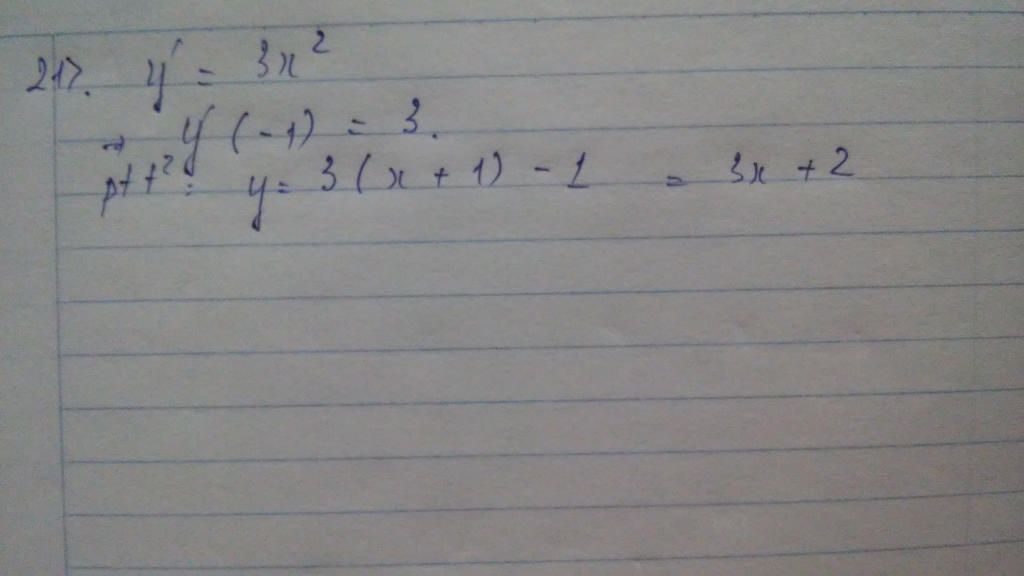 217. y' = 3x²
→ y'(-1) = 3.
pt t²: y = 3(x + 1) - 1 = 3x + 2